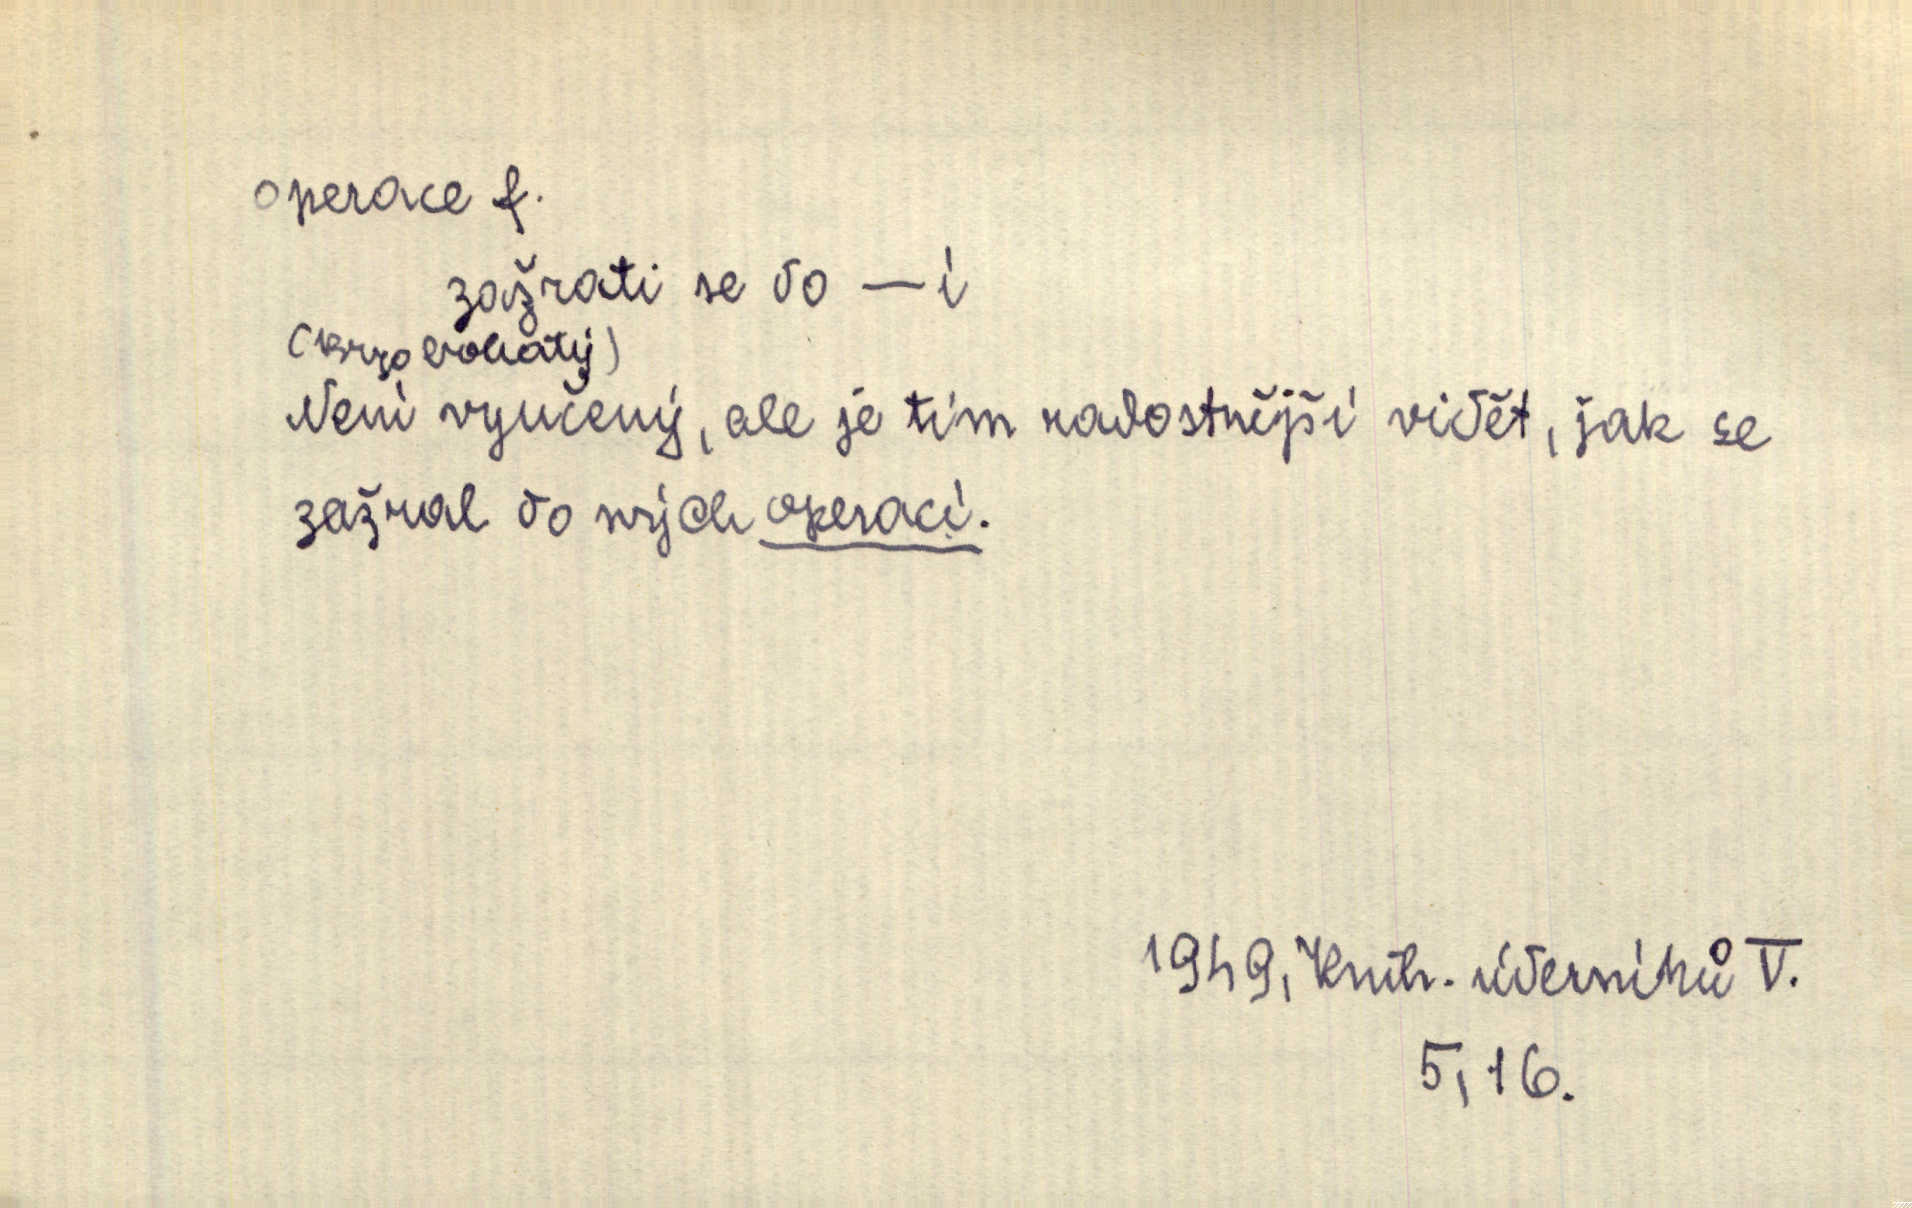 operace f.
zažrati se do — í
Není vyučený, ale je tím radostnější vidět, jak se
zažral do svých operací.
1949, Knih. úderníků V.
5, 16.